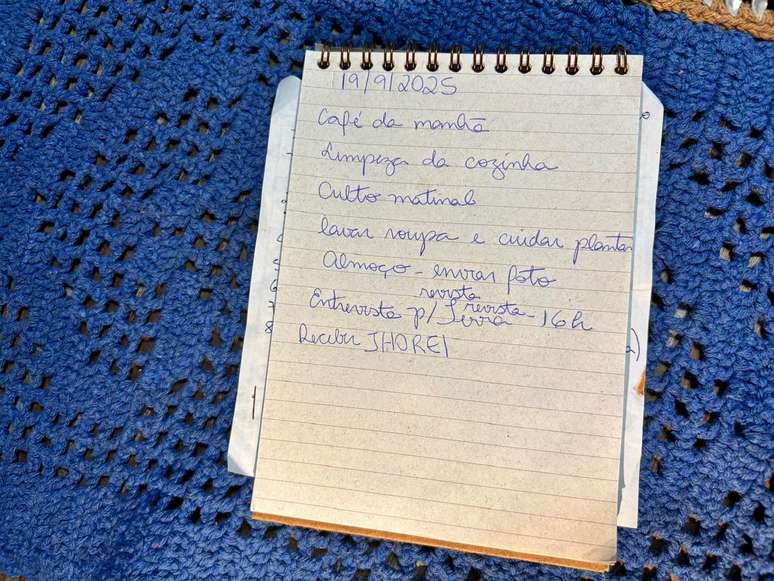 19/9/2025
Café da manhã
Limpeza da cozinha
Culto matinal
lavar roupa e cuidar plantas
Almoço - enviar foto
revista
Entrevista p/ Serra revista - 16h
Receber JHOREI